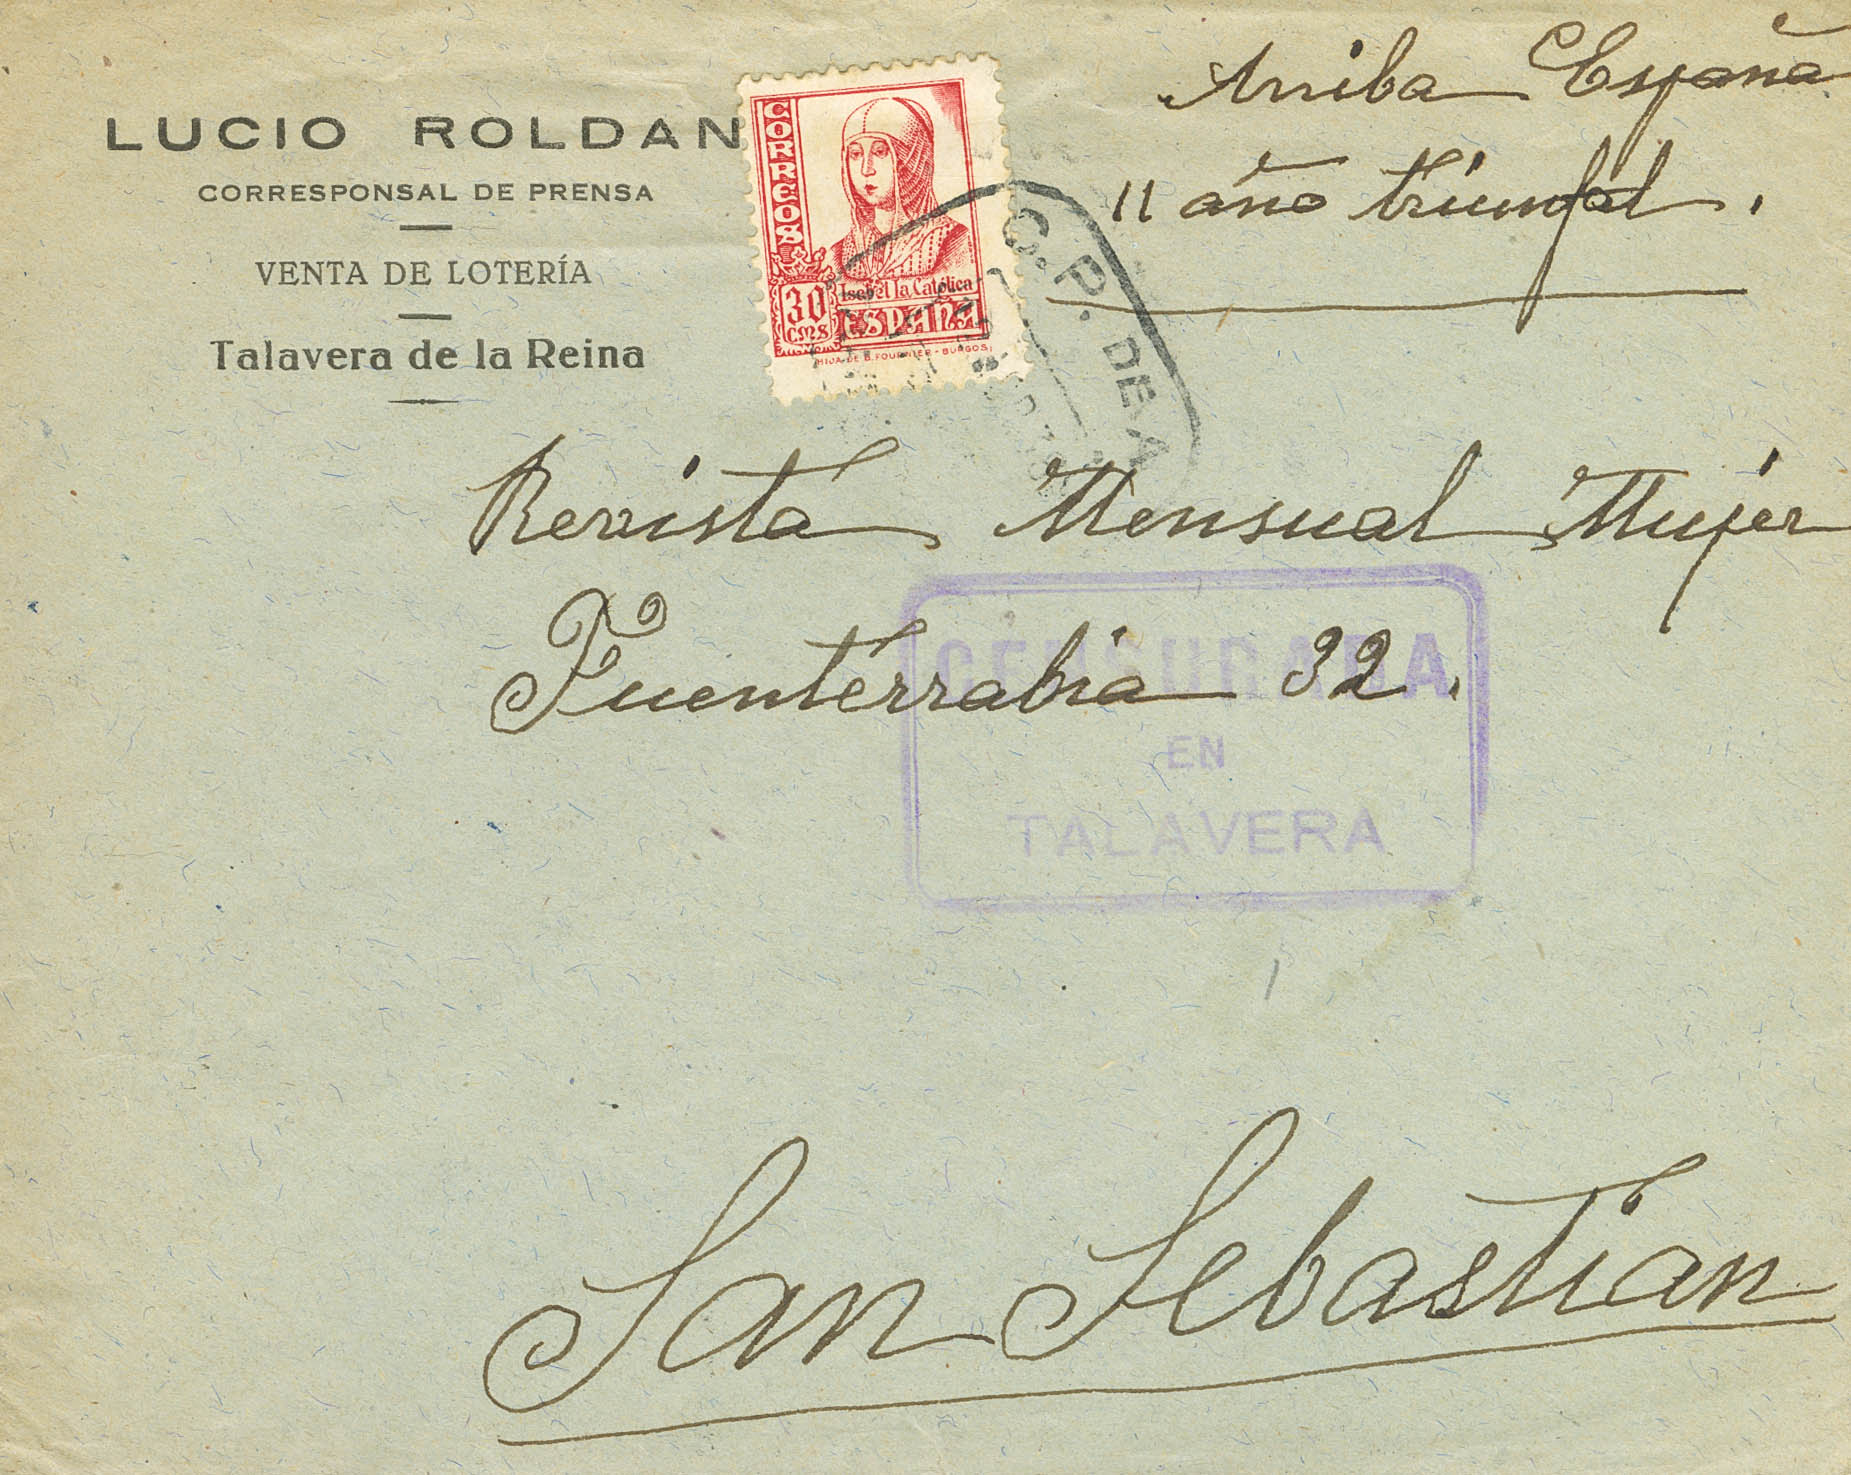 LUCIO ROLDAN
CORRESPONSAL DE PRENSA
VENTA DE LOTERÍA
Talavera de la Reina
CORREOS
30
CMS
Isabel la Católica
ESPAÑA
HIJA DE B. FOURNIER - BURGOS
C.P. DE A
Arriba España
11 año triunfal.
Revista Mensual Mujer
Fuenterrabia 32.
CENSURADA
EN
TALAVERA
San Sebastian